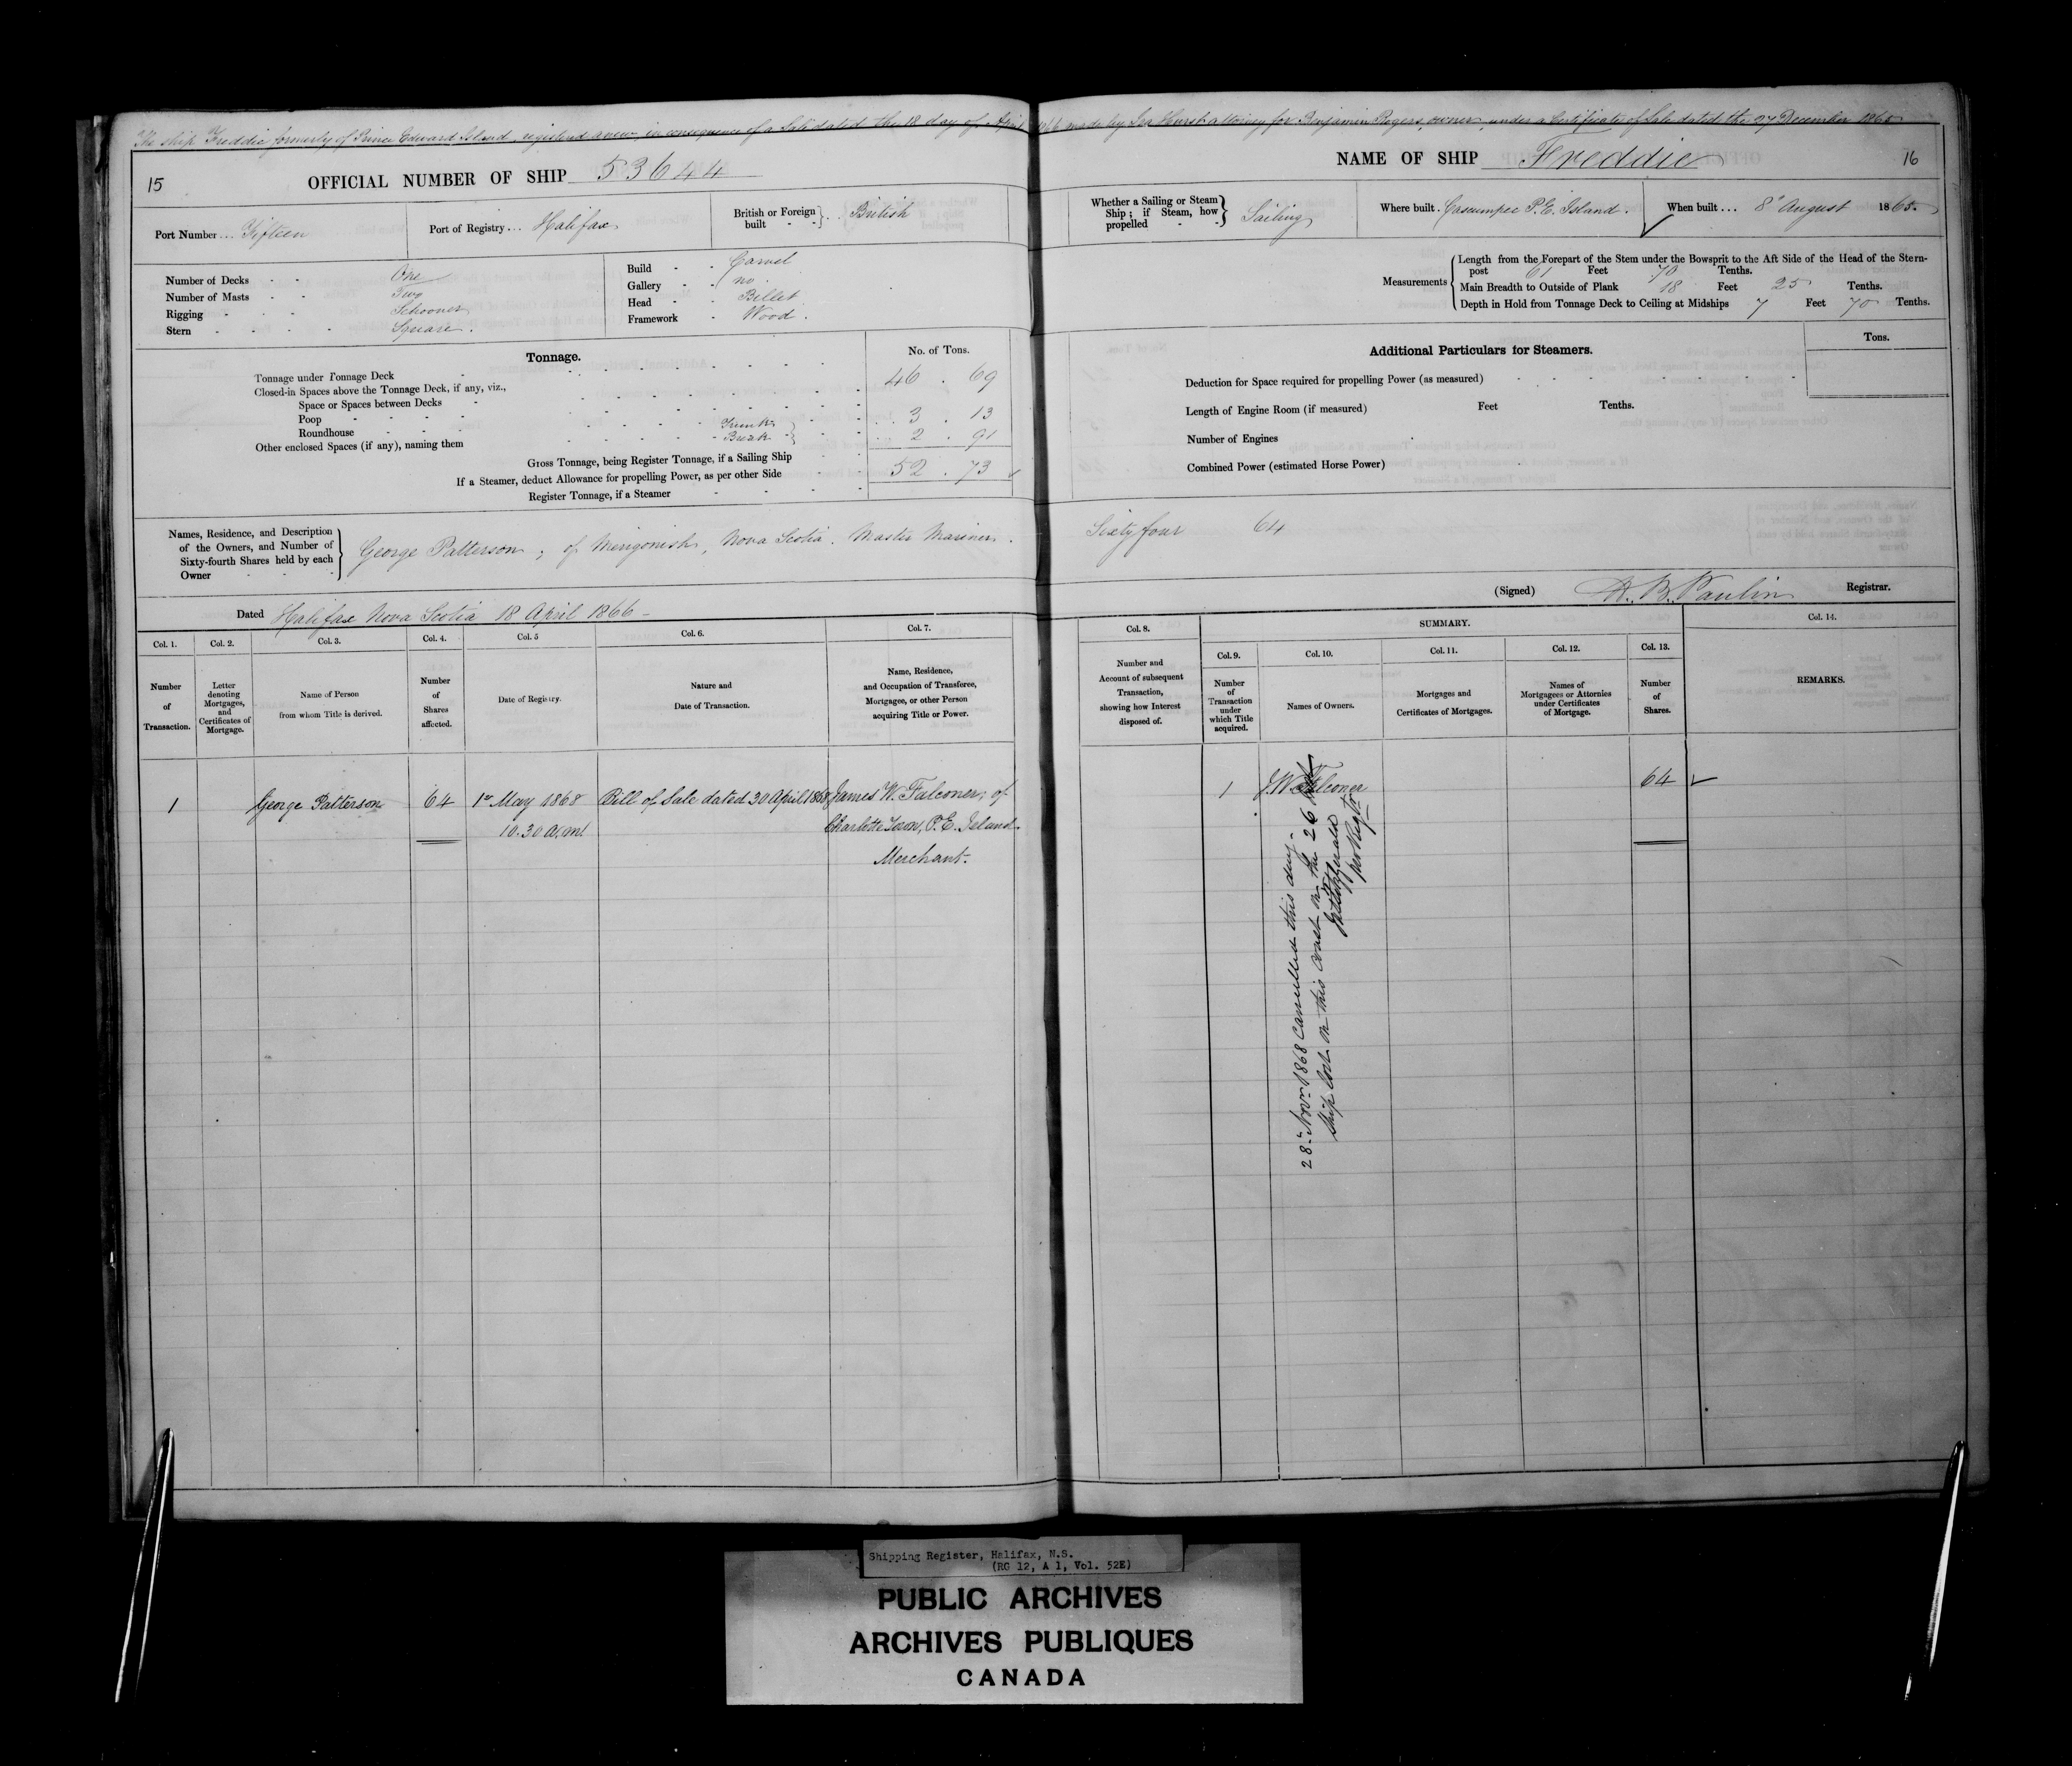 The ship Freddie formerly of Prince Edward Island, registered anew in consequence of a Sale dated the 18 day of April 1866 made by Ira Hurst attorney for Benjamin Rogers, owner, under a Certificate of Sale dated the 27 December 1865
15
OFFICIAL NUMBER OF SHIP 53644
Port Number... Fifteen
Port of Registry... Halifax
British or Foreign built - - } British
Number of Decks - - One
Number of Masts - - Two
Rigging - - - Schooner
Stern - - - - Square.
Build - - Carvel
Gallery - - no
Head - - Billet
Framework - Wood.
Tonnage.
No. of Tons.
Tonnage under Tonnage Deck 46 . 69
Closed-in Spaces above the Tonnage Deck, if any, viz.,
Space or Spaces between Decks
Poop
Roundhouse
Other enclosed Spaces (if any), naming them
Trunk 3 . 13
Break 2 . 91
Gross Tonnage, being Register Tonnage, if a Sailing Ship 52 . 73
If a Steamer, deduct Allowance for propelling Power, as per other Side
Register Tonnage, if a Steamer
Names, Residence, and Description
of the Owners, and Number of
Sixty-fourth Shares held by each
Owner
George Patterson, of Merigonish, Nova Scotia. Master Mariner.
Dated Halifax Nova Scotia 18 April 1866
Col. 1.
Number
of
Transaction.
Col. 2.
Letter
denoting
Mortgages,
and
Certificates of
Mortgage.
Col. 3.
Name of Person
from whom Title is derived.
Col. 4.
Number
of
Shares
affected.
Col. 5
Date of Registry.
Col. 6.
Nature and
Date of Transaction.
Col. 7.
Name, Residence,
and Occupation of Transferee,
Mortgagee, or other Person
acquiring Title or Power.
1 George Patterson 64 1st May 1868 Bill of Sale dated 30 April 1868 James W. Falconer, of
10.30 a.m Charlotte Town, P.E. Island
Merchant.
NAME OF SHIP Freddie
16
Whether a Sailing or Steam
Ship; if Steam, how
propelled - - } Sailing
Where built. Cascumpec P.E. Island.
When built ... 8 August 1865.
Measurements
Length from the Forepart of the Stem under the Bowsprit to the Aft Side of the Head of the Stern-
post 61 Feet 70 Tenths.
Main Breadth to Outside of Plank 18 Feet 25 Tenths.
Depth in Hold from Tonnage Deck to Ceiling at Midships 7 Feet 70 Tenths.
Additional Particulars for Steamers.
Tons.
Deduction for Space required for propelling Power (as measured)
Length of Engine Room (if measured) Feet Tenths.
Number of Engines
Combined Power (estimated Horse Power)
Sixty four 64
(Signed) H. B. Paulin Registrar.
Col. 8.
Number and
Account of subsequent
Transaction,
showing how Interest
disposed of.
SUMMARY.
Col. 9.
Number
of
Transaction
under
which Title
acquired.
Col. 10.
Names of Owners.
Col. 11.
Mortgages and
Certificates of Mortgages.
Col. 12.
Names of
Mortgagees or Attornies
under Certificates
of Mortgage.
Col. 13.
Number
of
Shares.
Col. 14.
REMARKS.
1 J.W. Falconer 64
28th Novr 1868 Cancelled this day
Ship lost on this Coast on the 26
Shipping Register, Halifax, N.S.
(RG 12, A 1, Vol. 52E)
PUBLIC ARCHIVES
ARCHIVES PUBLIQUES
CANADA